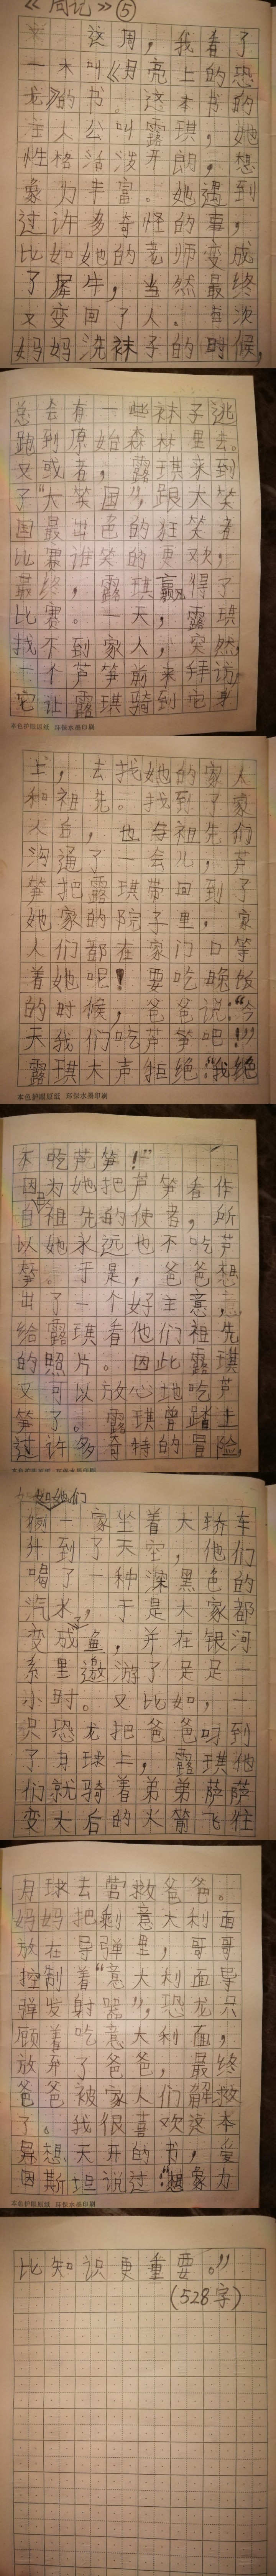 《周记》⑤
这周，我看了
一本叫《月亮上的恐
龙》的书。这本书的
主人公叫露琪，她
性格活泼开朗，想
象力丰富。她遇到
过许多奇怪的事，
比如她的老师变成
了犀牛，当然最终
又变回了人。每次
妈妈洗袜子的时候，
总会有一些袜子逃
跑到原始森林里去。
又或者，露琪来到
了“大笑国”，跟大笑
国最出色的狂笑者
比赛谁笑的更欢，
最终，露琪赢得了
比赛。一天，露琪
找不到家人，突然，
一个芦笋前来拜访，
它让露琪骑到它身
本色护眼原纸 环保水墨印刷
上，去找她的家人
和祖先。找到了家
人后，也与祖先们
沟通了一会儿，芦
笋把露琪带回到了
她家的院子里，家
人们都在家门口等
着她呢！要吃晚饭
的时候，爸爸说：“今
天我们吃芦笋吧！”
露琪大声拒绝：“我绝
本色护眼原纸 环保水墨印刷
不吃芦笋！”
因为她把芦笋看作
自祖先的使者，所
以她永远也不吃芦
笋。于是，爸爸想
出了一个好主意，
给露琪看他们祖先
的照片。因此露琪
又可以放心地吃芦
笋了。露琪曾踏上
过许多奇特的冒险，
本色护眼原纸 环保水墨印刷
如她们
一家坐着大轿车
升到了天空，他们
喝了一种深黑色的
汽水，于是大家都
变成鱼，并在银河
系里遨游了足足一
小时。又比如，一
只恐龙把爸爸叼到
了月球上，露琪他
们就骑着弟弟萨萨
变大后的火箭飞往
月球去营救爸爸。
妈妈把剩意大利面
放在导弹里，哥哥
控制着“意大利面导
弹发射器”，恐龙只
顾着吃意大利面，
放弃了爸爸，最终
爸爸被家人们解救
了。我很喜欢这本
异想天开的书，爱
因斯坦说过：“想象力
本色护眼原纸 环保水墨印刷
比知识更重要。”
（528字）